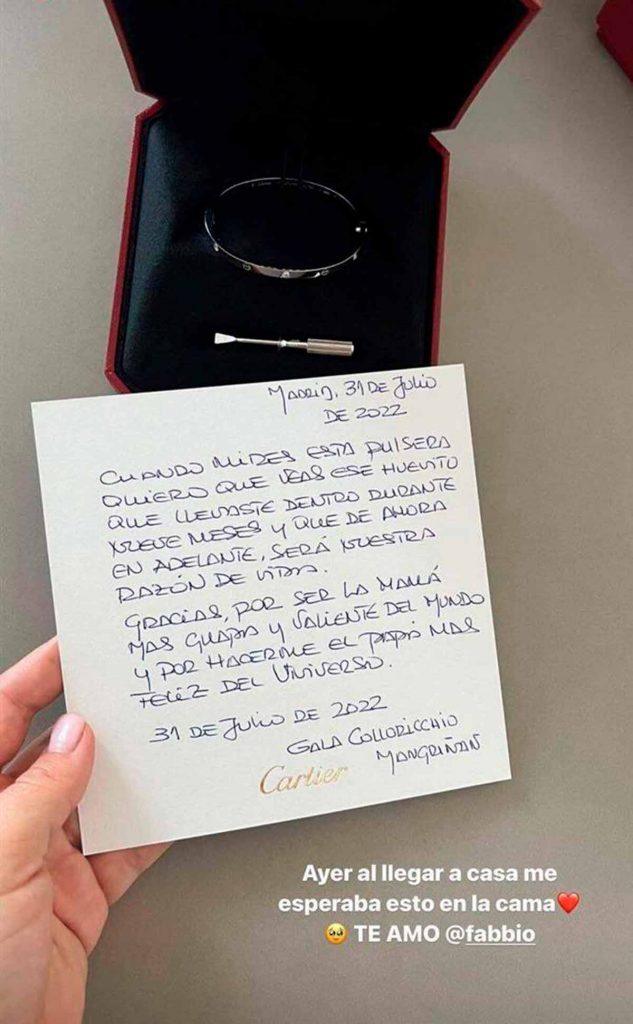 MADRID, 31 DE JULIO
DE 2022
CUANDO MIRES ESTA PULSERA
QUIERO QUE VEAS ESE HUEVITO
QUE LLEVASTE DENTRO DURANTE
NUEVE MESES Y QUE DE AHORA
EN ADELANTE, SERÁ NUESTRA
RAZÓN DE VIDA.
GRACIAS, POR SER LA MAMÁ
MAS GUAPA Y VALIENTE DEL MUNDO
Y POR HACERME EL PAPÁ MAS
FELIZ DEL UNIVERSO.
31 DE JULIO DE 2022
GALA COLLORICCHIO
MANGRIÑÁN
Cartier
Ayer al llegar a casa me
esperaba esto en la cama❤️
🥹 TE AMO @fabbio